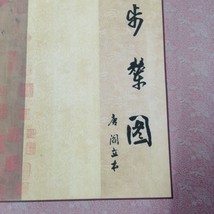 步辇图
唐阎立本